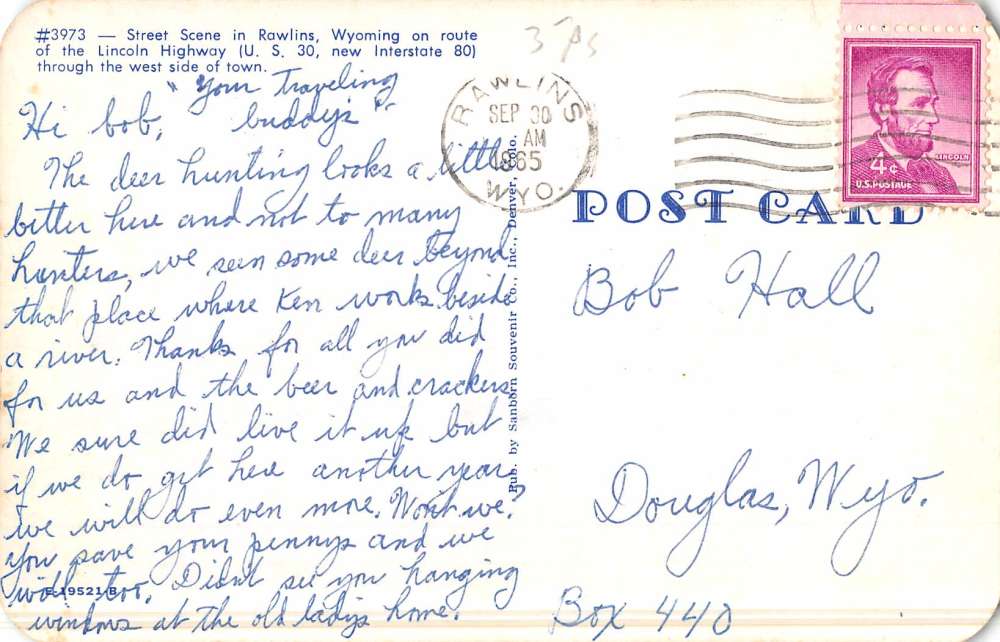 #3973 — Street Scene in Rawlins, Wyoming on route
of the Lincoln Highway (U. S. 30, new Interstate 80)
through the west side of town.
"Your Traveling
buddy's"
Hi bob,
The deer hunting looks a little
better here and not to many
hunters, we seen some deer beyond
that place where Ken works beside
a river. Thanks for all you did
for us and the beer and crackers
We sure did live it up but
if we do get here another year
we will do even more. Wont we?
You save your pennys and we
will too. Didnt see you hanging
windows at the old ladys home.
19521-B
Pub. by Sanborn Souvenir Co., Inc., Denver, Colo.
3 Ps
RAWLINS
SEP 30
AM
1965
WYO.
LINCOLN
4¢
U.S. POSTAGE
POST CARD
Bob Hall
Douglas, Wyo.
Box 440